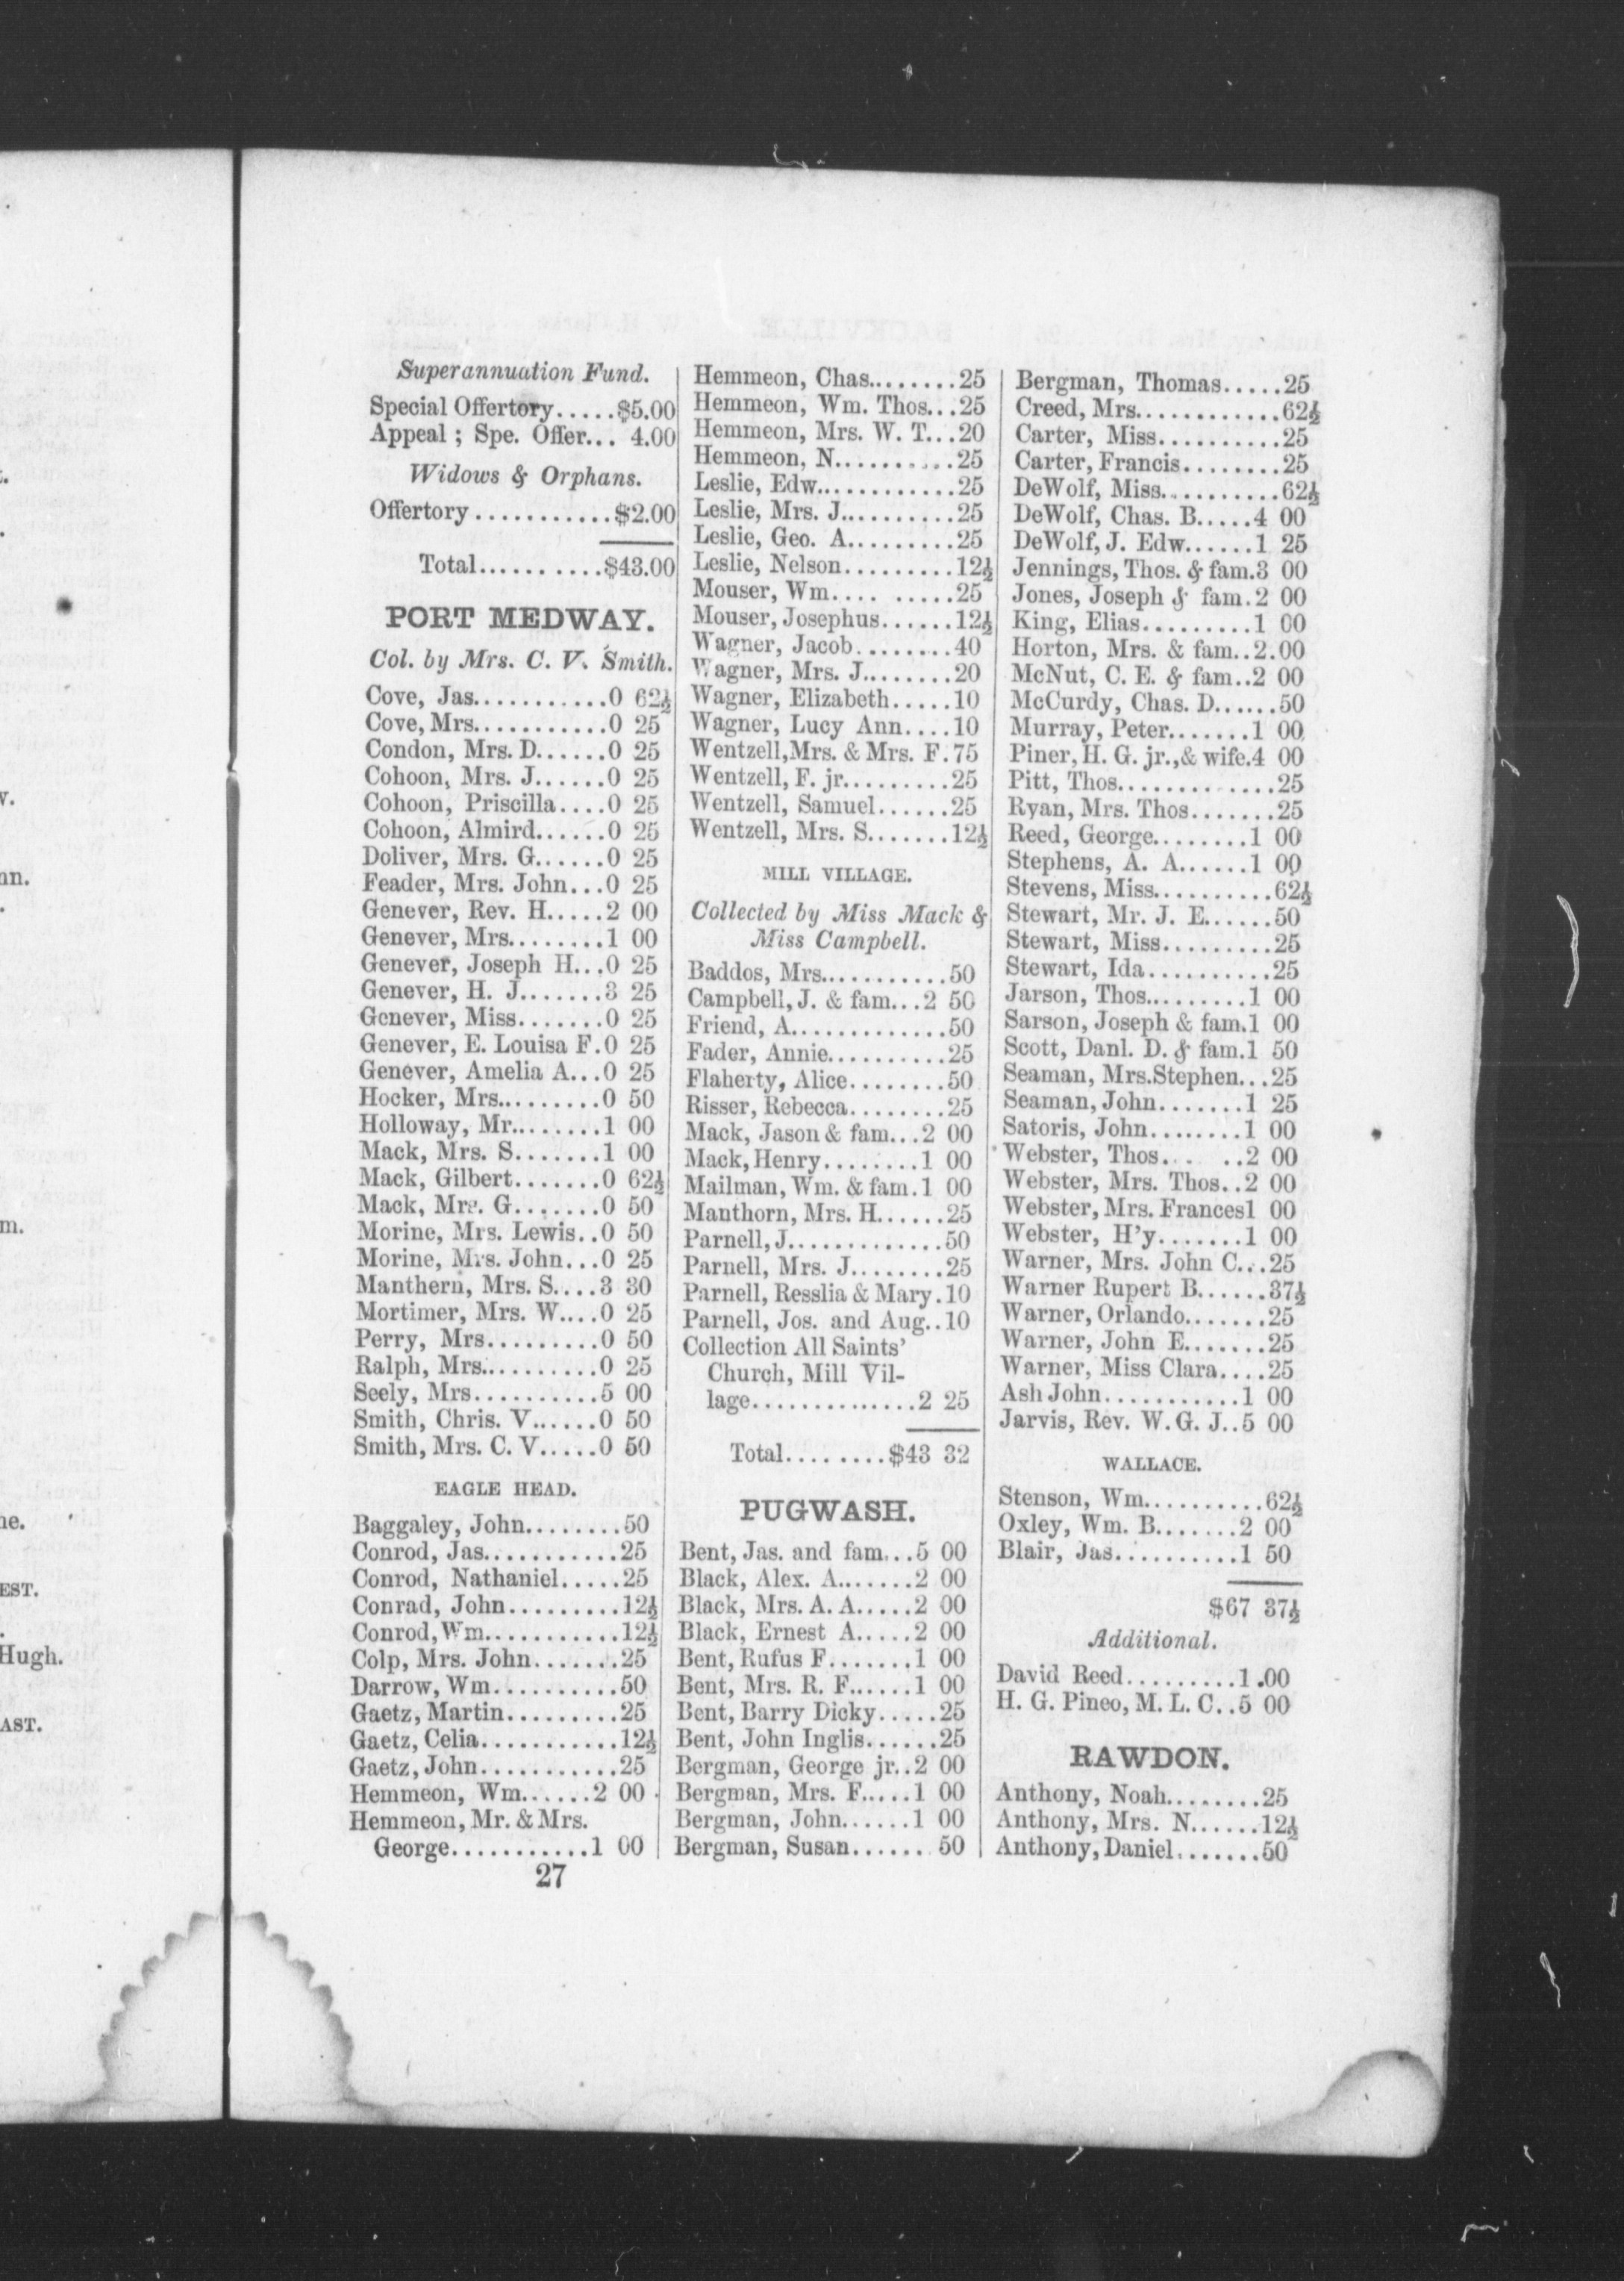 Superannuation Fund.
Special Offertory.....$5.00
Appeal ; Spe. Offer... 4.00
Widows & Orphans.
Offertory............$2.00
Total...........$43.00
PORT MEDWAY.
Col. by Mrs. C. V. Smith.
Cove, Jas............0 62½
Cove, Mrs............0 25
Condon, Mrs. D......0 25
Cohoon, Mrs. J......0 25
Cohoon, Priscilla....0 25
Cohoon, Almird......0 25
Doliver, Mrs. G......0 25
Feader, Mrs. John...0 25
Genever, Rev. H.....2 00
Genever, Mrs........1 00
Genever, Joseph H...0 25
Genever, H. J.......3 25
Genever, Miss.......0 25
Genever, E. Louisa F.0 25
Genever, Amelia A...0 25
Hocker, Mrs.........0 50
Holloway, Mr........1 00
Mack, Mrs. S.......1 00
Mack, Gilbert.......0 62½
Mack, Mrs. G.......0 50
Morine, Mrs. Lewis..0 50
Morine, Mrs. John...0 25
Manthern, Mrs. S....3 30
Mortimer, Mrs. W....0 25
Perry, Mrs..........0 50
Ralph, Mrs..........0 25
Seely, Mrs..........5 00
Smith, Chris. V......0 50
Smith, Mrs. C. V.....0 50
EAGLE HEAD.
Baggaley, John........50
Conrod, Jas............25
Conrod, Nathaniel.....25
Conrad, John.........12½
Conrod, Wm............12½
Colp, Mrs. John.......25
Darrow, Wm...........50
Gaetz, Martin.........25
Gaetz, Celia...........12½
Gaetz, John...........25
Hemmeon, Wm......2 00
Hemmeon, Mr. & Mrs.
George...........1 00
27
Hemmeon, Chas........25
Hemmeon, Wm. Thos...25
Hemmeon, Mrs. W. T...20
Hemmeon, N...........25
Leslie, Edw............25
Leslie, Mrs. J..........25
Leslie, Geo. A.........25
Leslie, Nelson.........12½
Mouser, Wm.... .....25
Mouser, Josephus......12½
Wagner, Jacob........40
Wagner, Mrs. J........20
Wagner, Elizabeth.....10
Wagner, Lucy Ann....10
Wentzell, Mrs. & Mrs. F.75
Wentzell, F. jr.........25
Wentzell, Samuel......25
Wentzell, Mrs. S.......12½
MILL VILLAGE.
Collected by Miss Mack &
Miss Campbell.
Baddos, Mrs...........50
Campbell, J. & fam...2 50
Friend, A.............50
Fader, Annie..........25
Flaherty, Alice........50
Risser, Rebecca........25
Mack, Jason & fam...2 00
Mack, Henry........1 00
Mailman, Wm. & fam.1 00
Manthorn, Mrs. H......25
Parnell, J.............50
Parnell, Mrs. J........25
Parnell, Resslia & Mary.10
Parnell, Jos. and Aug..10
Collection All Saints'
Church, Mill Vil-
lage..............2 25
Total.........$43 32
PUGWASH.
Bent, Jas. and fam...5 00
Black, Alex. A.......2 00
Black, Mrs. A. A.....2 00
Black, Ernest A.....2 00
Bent, Rufus F.......1 00
Bent, Mrs. R. F......1 00
Bent, Barry Dicky.....25
Bent, John Inglis......25
Bergman, George jr..2 00
Bergman, Mrs. F.....1 00
Bergman, John......1 00
Bergman, Susan...... 50
Bergman, Thomas.....25
Creed, Mrs............62½
Carter, Miss..........25
Carter, Francis........25
DeWolf, Miss..........62½
DeWolf, Chas. B.....4 00
DeWolf, J. Edw......1 25
Jennings, Thos. & fam.3 00
Jones, Joseph & fam.2 00
King, Elias.........1 00
Horton, Mrs. & fam..2.00
McNut, C. E. & fam..2 00
McCurdy, Chas. D......50
Murray, Peter.......1 00
Piner, H. G. jr., & wife.4 00
Pitt, Thos..............25
Ryan, Mrs. Thos.......25
Reed, George........1 00
Stephens, A. A......1 00
Stevens, Miss..........62½
Stewart, Mr. J. E......50
Stewart, Miss.........25
Stewart, Ida..........25
Jarson, Thos.........1 00
Sarson, Joseph & fam.1 00
Scott, Danl. D. & fam.1 50
Seaman, Mrs. Stephen...25
Seaman, John.......1 25
Satoris, John........1 00
Webster, Thos... ..2 00
Webster, Mrs. Thos..2 00
Webster, Mrs. Frances1 00
Webster, H'y.......1 00
Warner, Mrs. John C...25
Warner Rupert B......37½
Warner, Orlando.......25
Warner, John E.......25
Warner, Miss Clara....25
Ash John............1 00
Jarvis, Rev. W. G. J..5 00
WALLACE.
Stenson, Wm..........62½
Oxley, Wm. B.......2 00
Blair, Jas...........1 50
$67 37½
Additional.
David Reed.........1.00
H. G. Pineo, M. L. C..5 00
RAWDON.
Anthony, Noah........25
Anthony, Mrs. N......12½
Anthony, Daniel.......50
nn.
m.
ne.
EST.
Hugh.
AST.